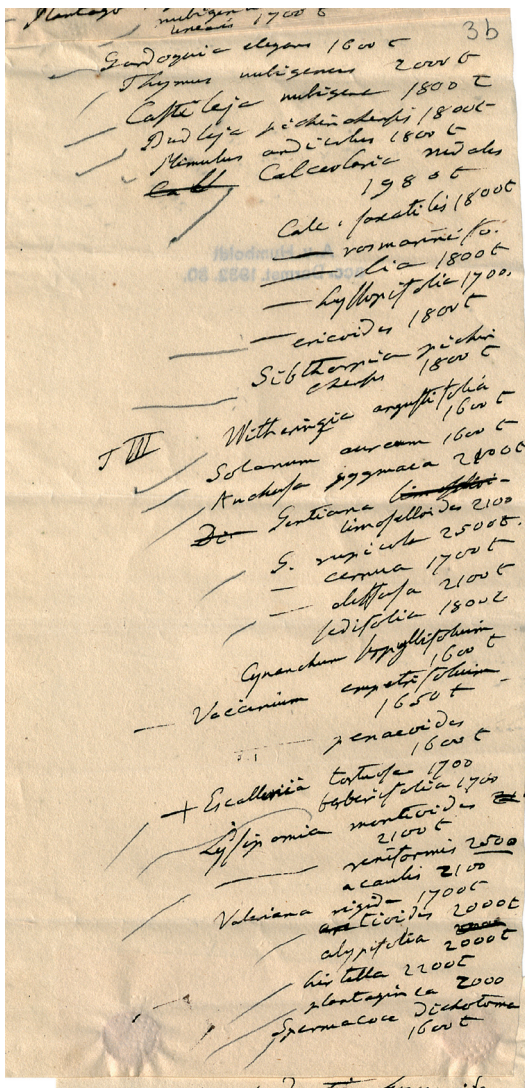 Plantago nubigena
linearis 1700 t
3b
Gardoquia elegans 1600 t
Thymus nubigenus 2000 t
Castileja nubigena 1800 t
Budleja pichinchensis 1800 t
Mimulus andicolus 1800 t
Calceolaria
1980 t
Calc. saxatilis 1800 t
— rosmarinifo-
— lia 1800 t
— hyssopifolia 1700
— ericoides 1800 t
Sibthorpia pichin
chensis 1800 t
Witheringia angustifolia
1600 t
J III
Solanum aureum 1600 t
Anchusa pygmaea 2100 t
Gentiana
limoselloides 2100
G. rupicola 2500 t.
— cernua 1700 t
— diffusa 2100 t
sedifolia 1800 t
Cynanchum serpyllifolium
1600 t
Vaccinium empetrifolium
1650 t
penaeoides
1600 t
+ Escallonia tortuosa 1700
berberifolia 1700
Lysipomia montioides
2100 t
— reniformis 2500
acaulis 2100
Valeriana rigida 1700 t
aretioides 2000 t
alypifolia 2000 t
hirtella 2200 t
plantaginea 2000
Spermacoce dichotoma
1600 t